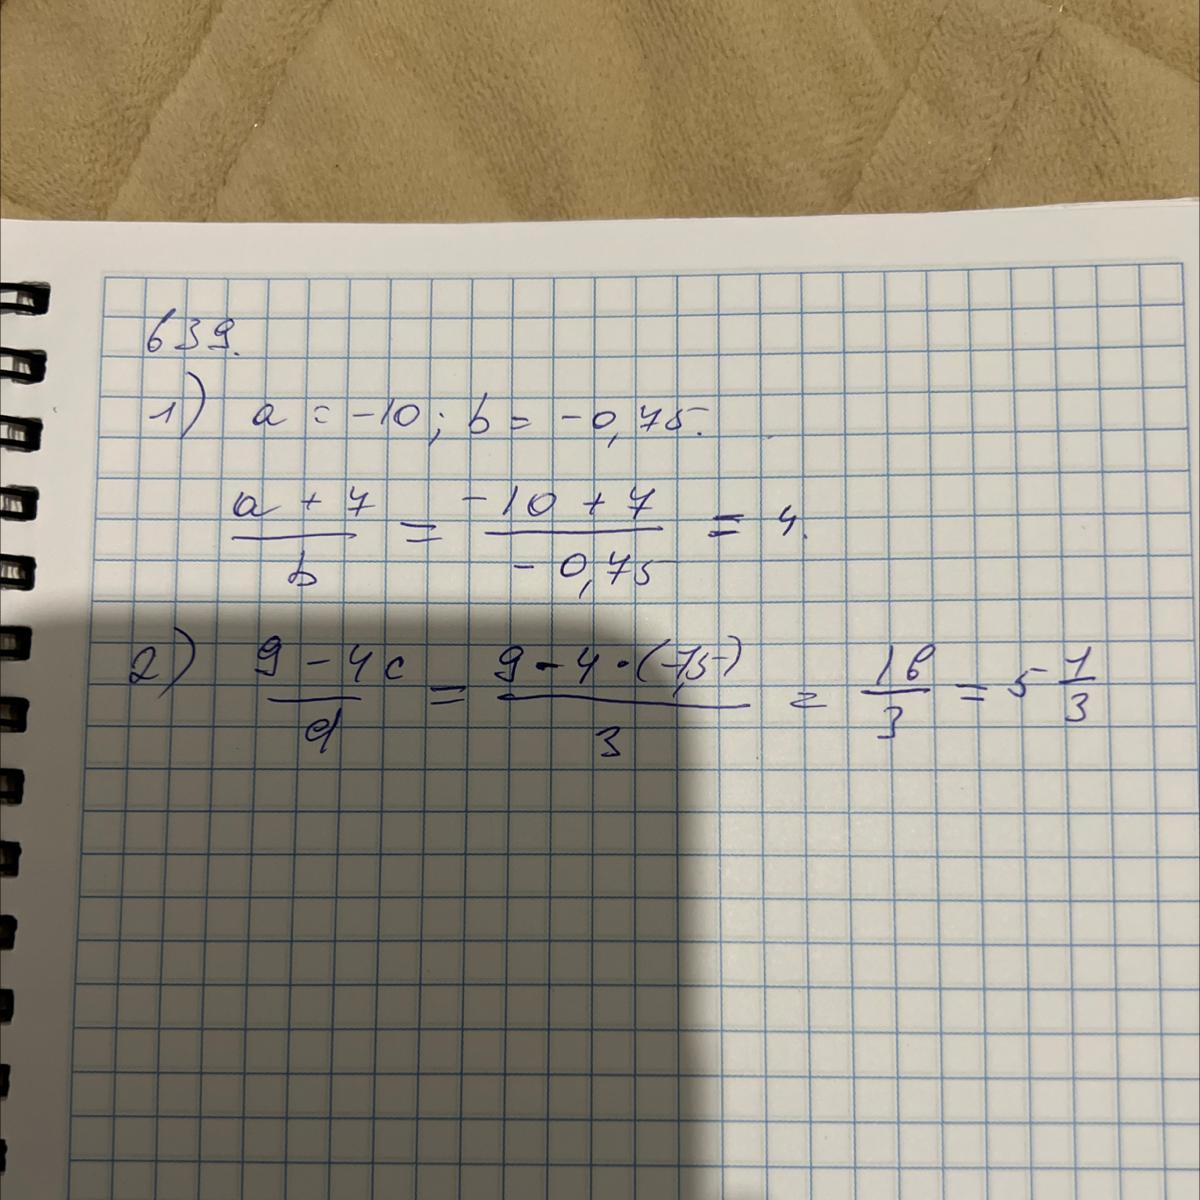 639.
1) a = -10; b = -0,75.
(a + 7)/b = (-10 + 7)/(-0,75) = 4.
2) (9 - 4c)/d = (9 - 4·(-7,5))/3 = 16/3 = 5 1/3